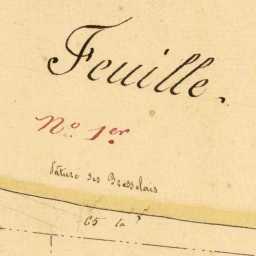 Feuille.
N.º 1.er
Pâture des Bresselais
65